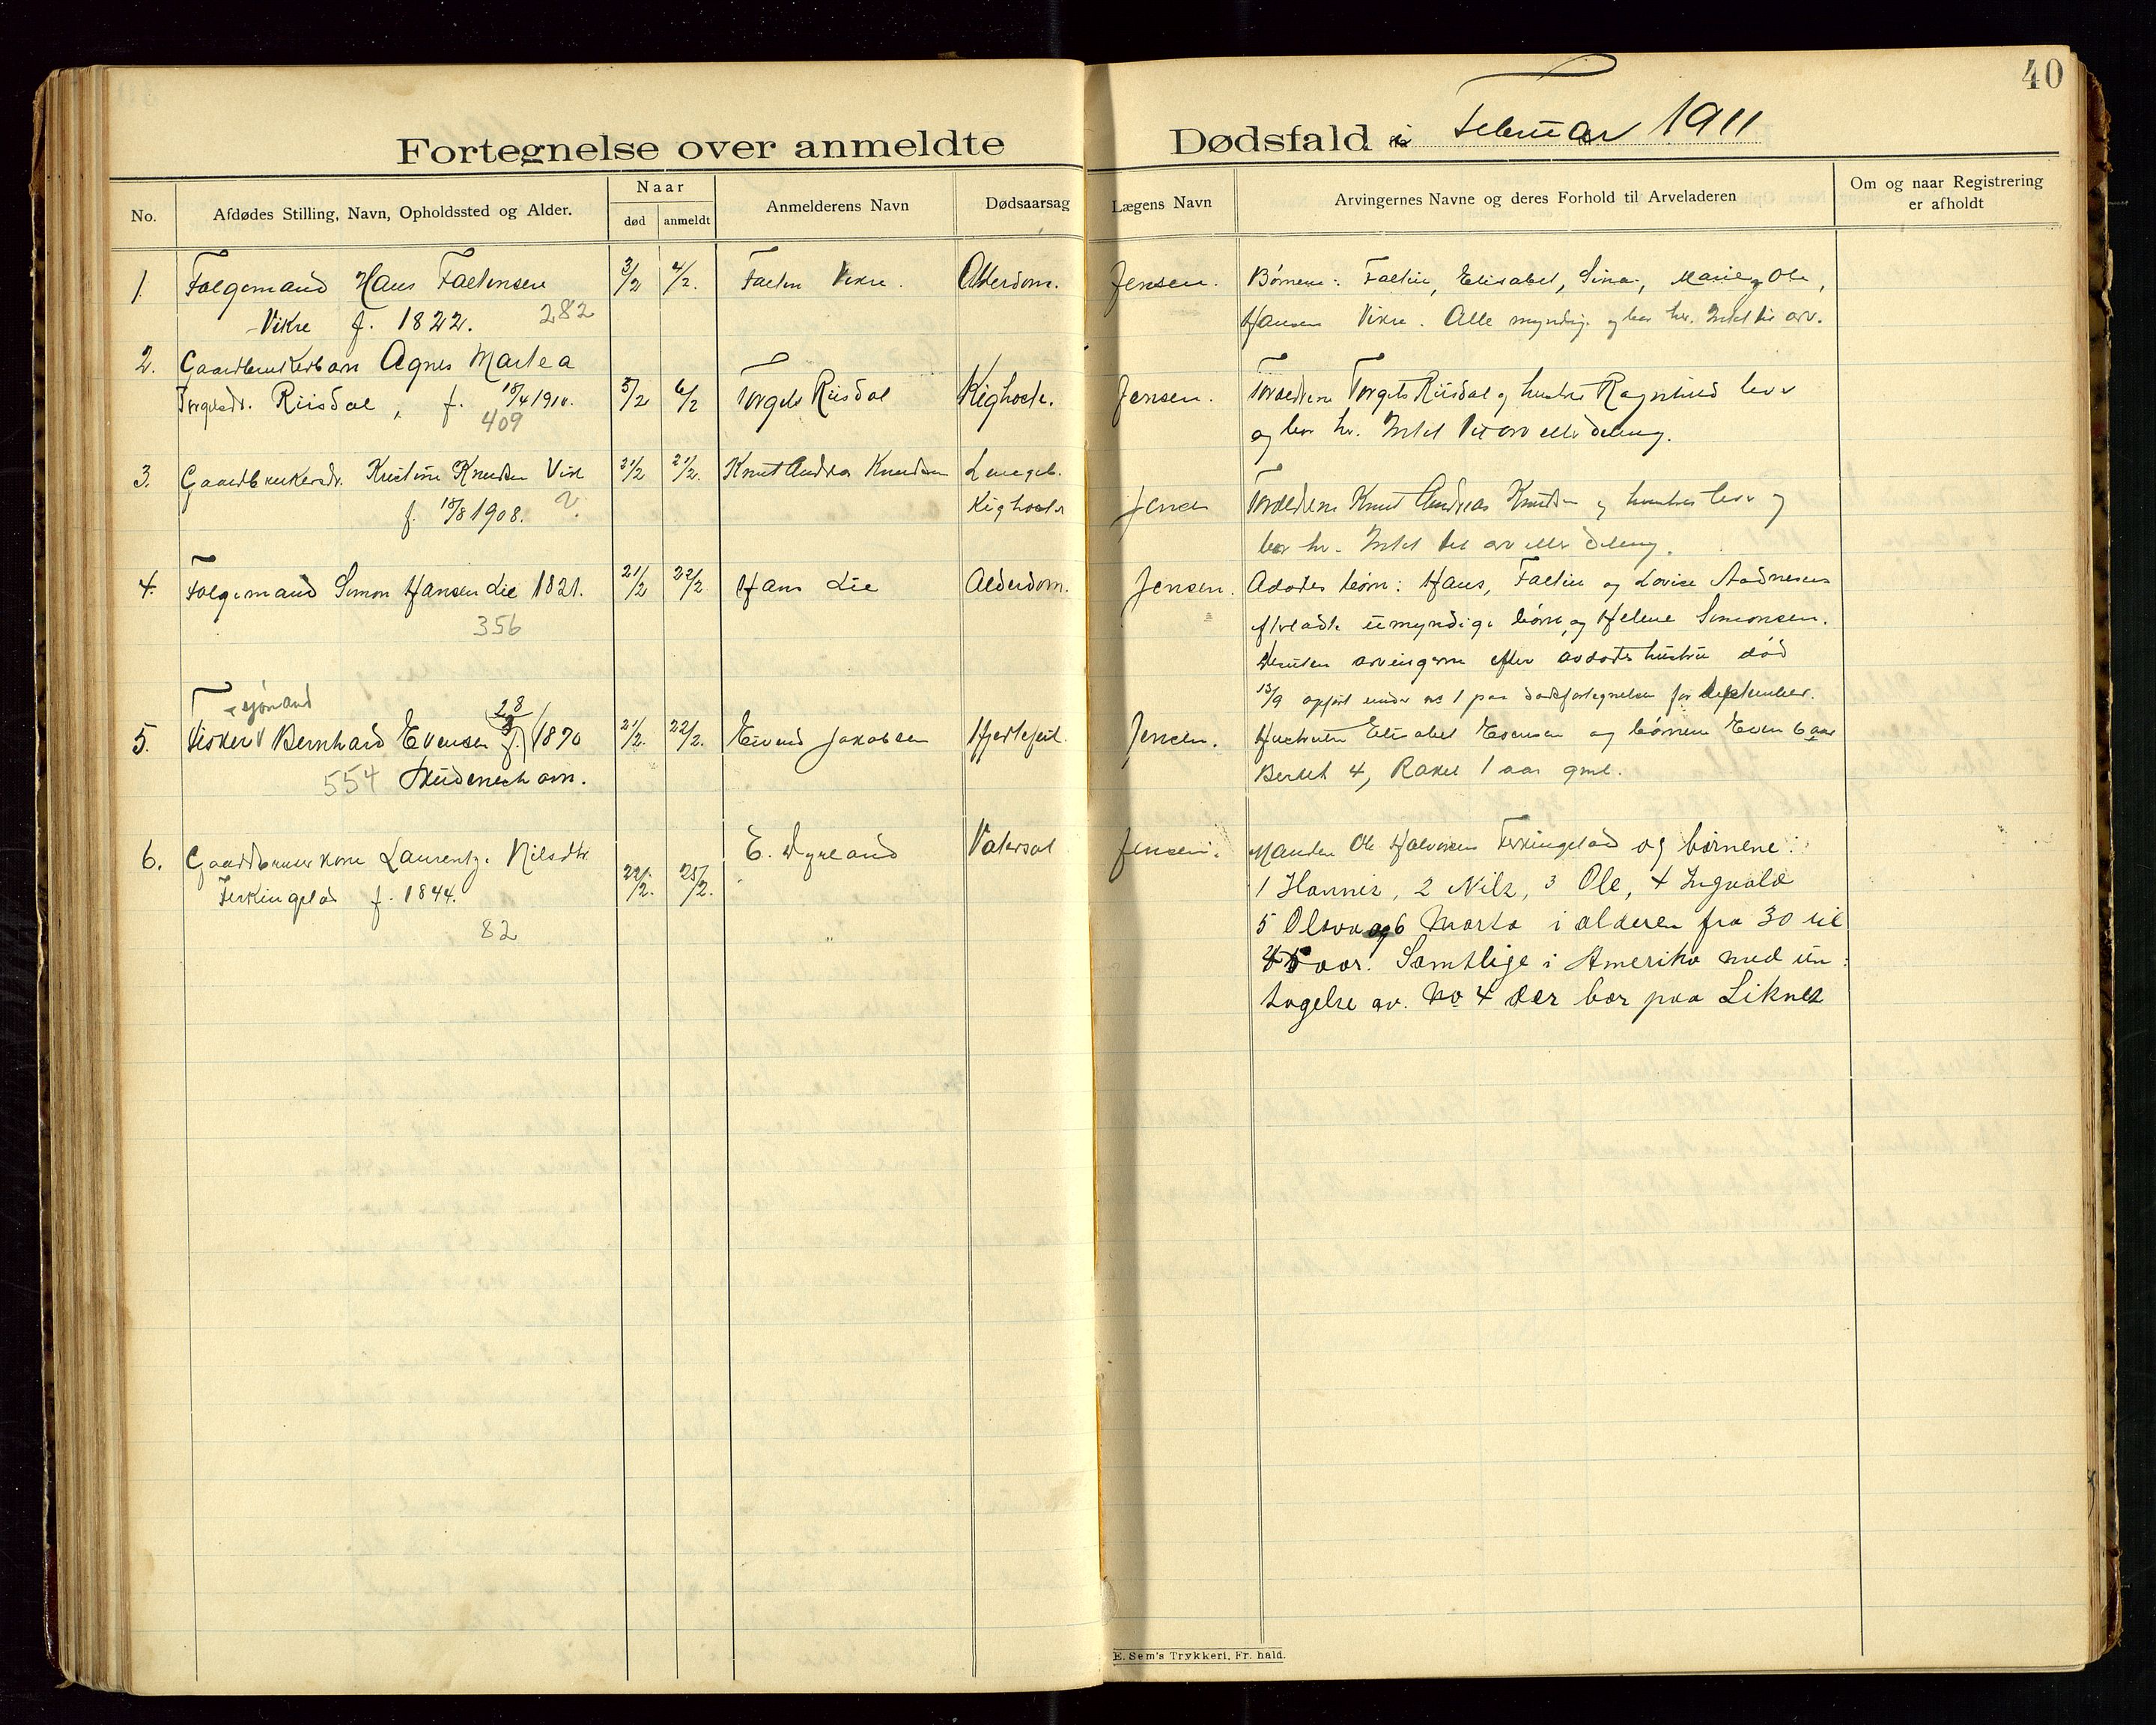 40
Fortegnelse over anmeldte Dødsfald i Februar 1911
No. Afdødes Stilling, Navn, Opholdssted og Alder. Naar død anmeldt Anmelderens Navn Dødsaarsag Lægens Navn Arvingernes Navne og deres Forhold til Arveladeren Om og naar Registrering er afholdt
1. Folgemand Hans Faltinsen 3/2 4/2. Faltin Vikre. Alderdom. Jensen. Børnene: Faltin, Elisabet, Sina, Marie og Ole,
Vikre f. 1822. 282 Hansen Vikre. Alle myndig. og bor her. Intet til arv.
2. Gaardbrukerbarn Agnes Martea
Torgelsdr. Riisdal, f. 18/4 1910. 5/2 6/2 Torgels Riisdal Kighoste. Jensen. Foraeldrene Torgels Riisdal og hustru Ragnhild lever
409 og bor her. Intet til arv eller deling.
3. Gaardbrukersdr. Kristine Knudsen Vik 21/2 21/2. Knut Andreas Knudsen Lungeb.
f. 18/8 1908. 2. Kighoste Jensen Foraeldrene Knut Andreas Knudsen og hustru lever og
bor her. Intet til arv eller deling.
4. Folgemand Simon Hansen Lie 1821. 21/2 22/2 Hans Lie Alderdom. Jensen. Avdødes børn: Hans, Faltin og Lovise Aadnesens
356 efterladte umyndige børn, og Helene Simonsen.
arvingerne efter avdødes hustru død
13/9 opført under no 1 paa dødsfortegnelsen for September.
sjømand 28
5. Fisker v Bernhard Evensen f. 1870 21/2. 22/2. Eivind Jakobsen Hjertefeil. Jensen. Hustruen Elisabet Evensen og børnene Even 6 aar
554 Skudeneshavn. Berket 4, Rakel 1 aar gml.
6. Gaardbruker kone Laurentze Nilsdtr. E. Dyrland Vatersot Jensen. Manden Ole Halvorsen Ferkingstad og børnene:
Ferkingstad f. 1844. 22/2. 25/2. 1 Hannes, 2 Nils, 3 Ole, 4 Ingvald
82 5 Olava og 6 Marta i alderen fra 30 til
45 aar. Samtlige i Amerika med un:
tagelse av. No 4 der bor paa Liknes
E. Sem's Trykkeri, Fr. hald.